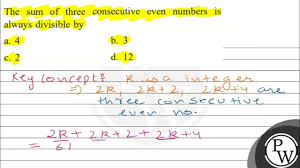 The sum of three consecutive even numbers is
always divisible by
a. 4 b. 3
c. 2 d. 12
Key concept: k is a integer
⇒ 2k, 2k+2, 2k+4 are
three consecutive
even no.
= 2k + 2k+2 + 2k+4